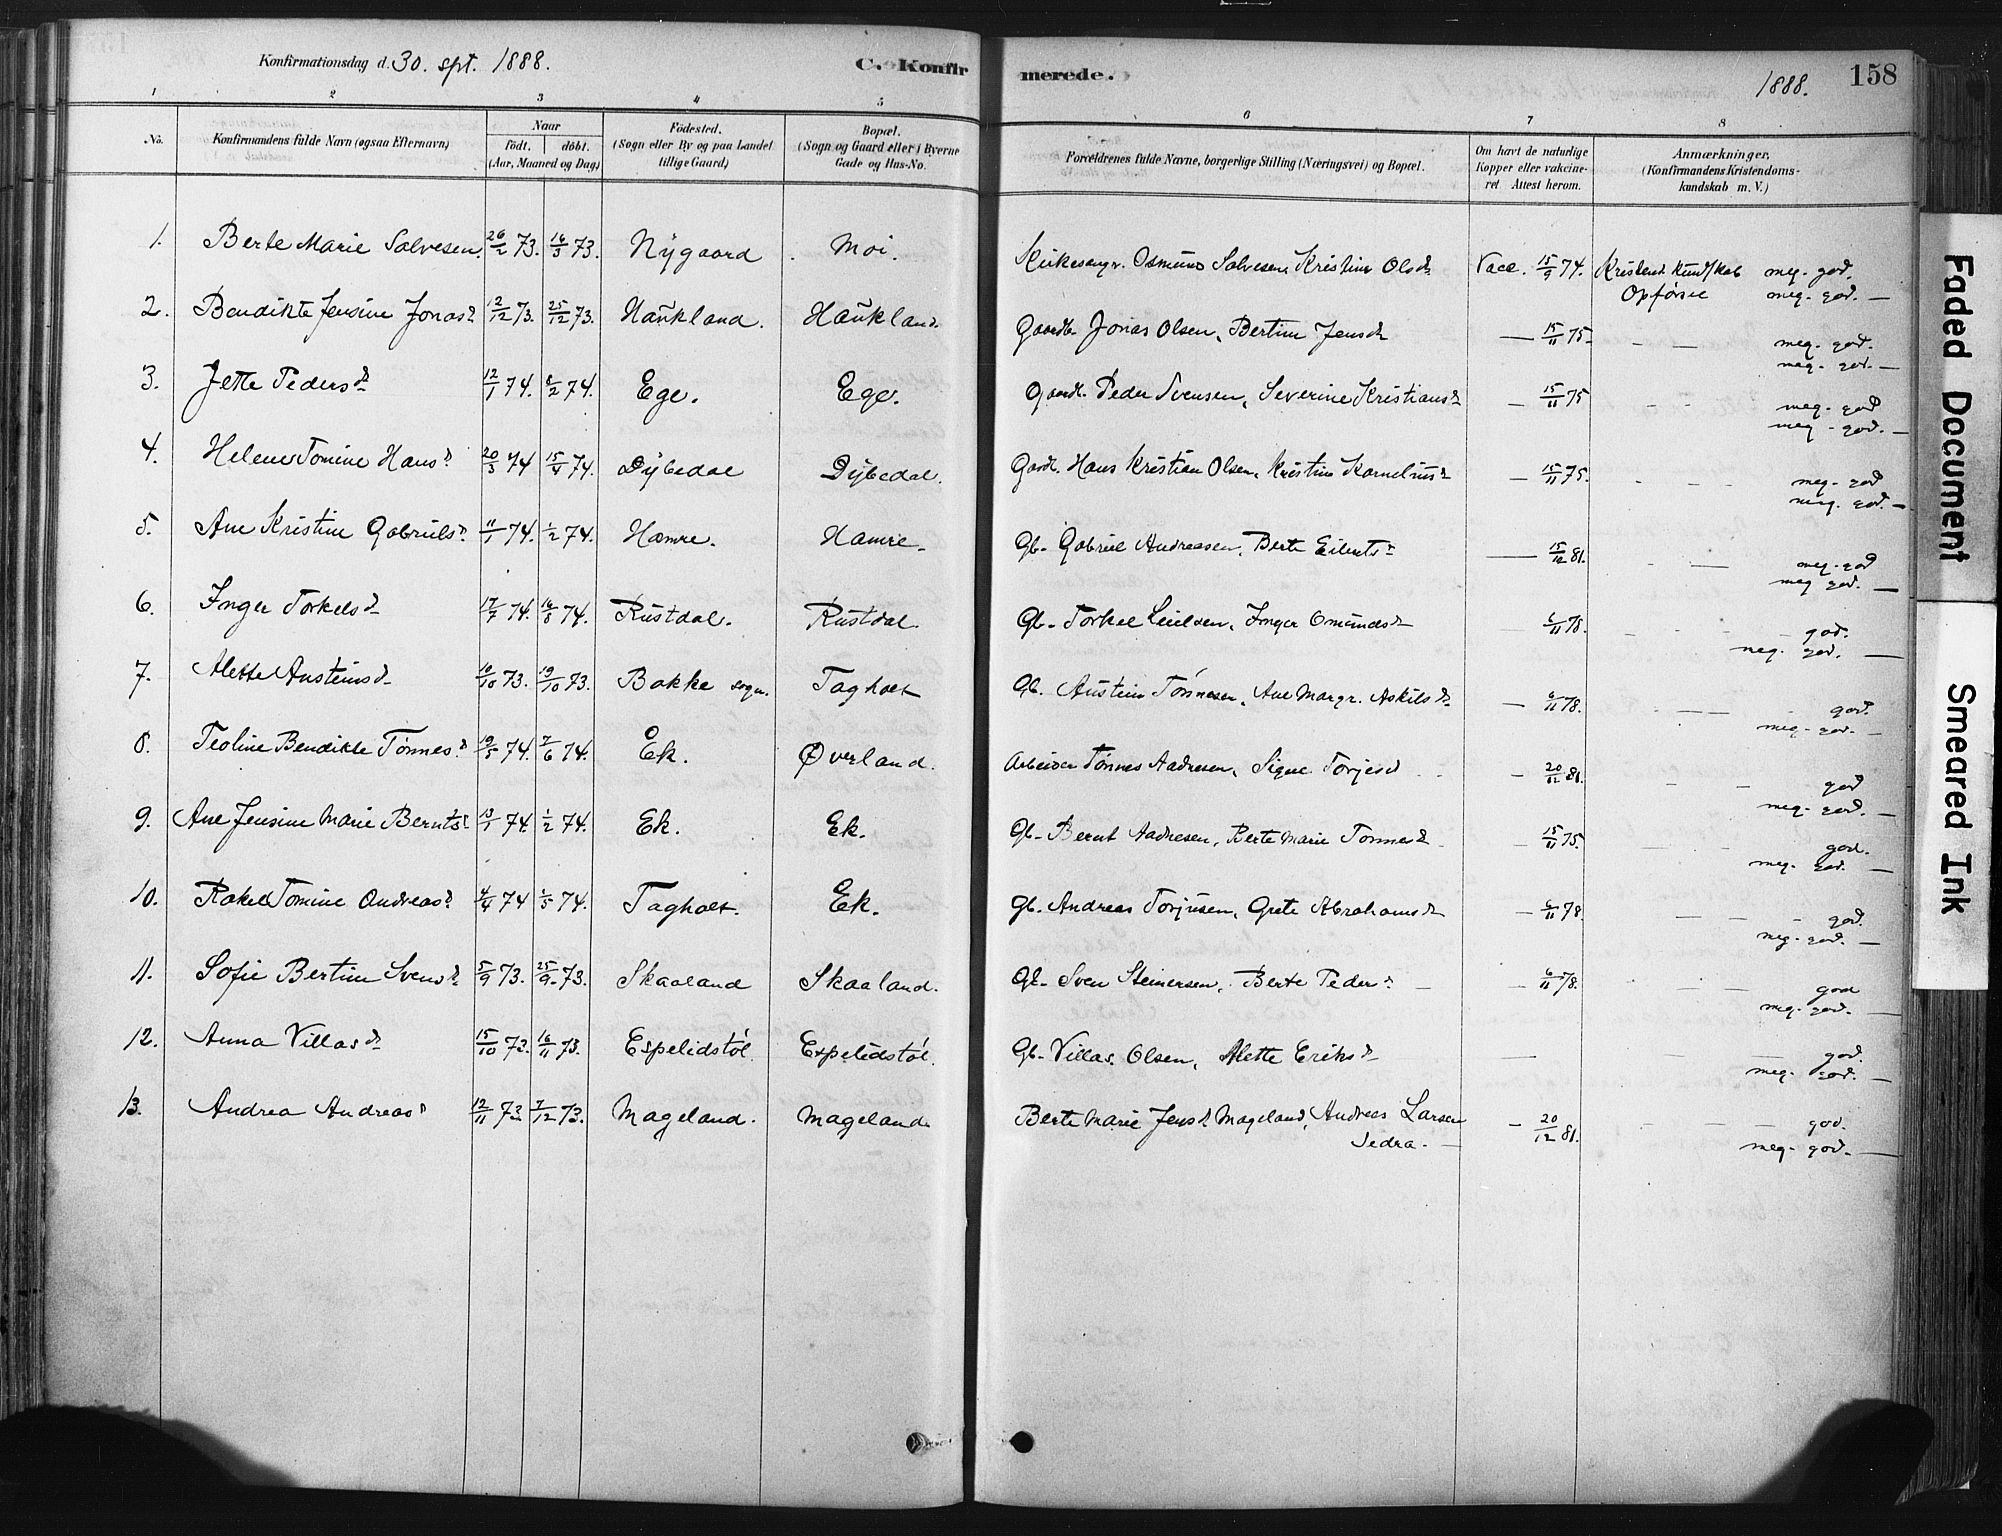 Konfirmationsdag d. 30. spt. 1888.
C. Konfirmerede.
1888. 158
1 2 3 4 5 6 7 8
No. Konfirmandens fulde Navn (ogsaa Efternavn) Naar født. døbt. (Aar, Maaned og Dag) Fødested. (Sogn eller By og paa Landet tillige Gaard) Bopæl. (Sogn og Gaard eller i Byerne Gade og Hus-No. Forældrenes fulde Navne, borgerlige Stilling (Næringsvei) og Bopæl. Om havt de naturlige Kopper eller vakcineret Attest herom. Anmærkninger, (Konfirmandens Kristendomskundskab m. V.)
1. Berte Marie Salvesen. 26/2 73. 16/3 73. Nygaard Moi. Kirkesangr. Osmund Salvesen, Kristine Olsd. Vacc. 15/9 74. Kristend. Kundskab meg. god.
Opførsel meg. god. —
2. Bendikte Jensine Jonasd. 12/12 73. 25/12 73. Haukland. Haukland. Gaardb. Jonas Olsen, Bertine Jensd. — 15/11 75 - — meg. god.
meg. god. —
3. Jette Pedersd. 12/1 74. 8/2 74. Ege. Ege. Gaardb. Peder Svensen, Severine Kristiansd. — 15/11 75 - - meg. god
meg. god. —
4. Helene Tomine Hansd. 20/3 74 15/4 74. Dybedal Dybedal. Gaardb. Hans Kristian Olsen, Kristine Korneliusd. — 15/11 75. - - - meg. god
meg. god. —
5. Ane Kristine Gabrielsd. 11/1 74. 1/2 74. Hamre. Hamre. Gb. Gabriel Andreasen, Berte Eilertsd. — 15/12 81. - — meg. god
meg god. —
6. Inger Torkelsd. 17/7 74. 16/8 74. Rustdal. Rustdal. Gb. Torkel Leielsen, Inger Omundsd. — 6/11 78. - - - god.
meg. god. —
7. Alette Austeinsd. 10/10 73. 19/10 73. Bakke sogn. Tagholt Gb. Austein Tønnesen, Ane Margr. Askilsd. — 6/11 78. - — - god.
meg. god. —
8. Teoline Bendikte Tønnesd. 19/5 74. 7/6 74. Ek. Øverland. Arbeider Tønnes Aadnesen, Signe Torjesd. - 20/12 81. - - god
meg. god. —
9. Ane Jensine Marie Berntsd. 13/1 74. 1/2 74. Ek. Ek. Gb. Bernt Aadnesen, Berte Marie Tønnesd. - 15/11 75. - - god.
meg. god. —
10. Rakel Tomine Andreasd. 4/4 74 1/5 74. Tagholt. Ek. Gb. Andreas Torjusen, Grete Abrahamsd. — 6/11 78. — — - god.
meg. god. —
11. Sofie Bertine Svensd. 5/9 73. 25/9 73. Skaaland Skaaland. Gb. Sven Steinersen, Berte Pedersd. — 6/11 78. - — — god
meg. god. —
12. Anna Villasd. 15/10 73. 16/11 73. Espelidstøl. Espelidstøl. Gb. Villas Olsen, Alette Eriksd. — — god.
meg. god. —
13. Andrea Andreasd. 12/11 73 7/12 73. Mageland. Mageland. Berte Marie Jensd. Mageland, Andreas Larsen - 20/12 81. - — — god.
Sedra. — meg. god. —
Faded Document
Smeared Ink